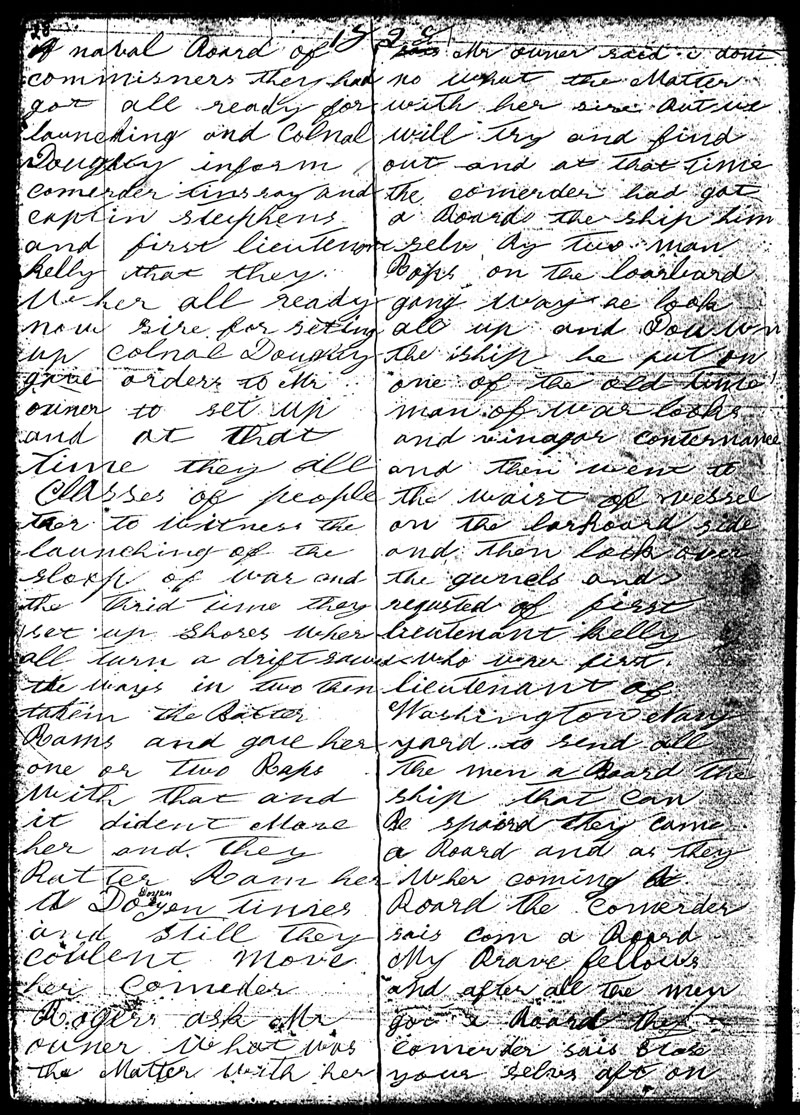 28
A naval Board of
commisners they had
got all ready for
launching and Colnal
Doughty inform
comerder tinsray and
captin stephens
and first lieutenent
kelly that they
Wher all ready
now sire for seting
up Colnal Doughty
gave orders to Mr
owner to set up
and at that
time they all
Classes of people
ther to witness the
launching of the
sloop of war and
the thrid time they
set up shores wher
all turn a drift sawed
the ways in two then
takein the Batter
Rams and gave her
one or two Raps
With that and
it dident Move
her and they
Batter Ram her
a Dozen times
and still they
coulent move
her Comeder
Rogers ask Mr
owner What was
the Matter With her
Mr owner said i dont
no what the Matter
with her sire But we
will try and find
out and at that time
the comerder had got
a Board the ship him
selv By two man
Rops on the loarbeard
gang way he look
all up and Douwn
the ship he put on
one of the old time
man of war looks
and vinagar conternance
and then went to
the waist of vessel
on the larboard side
and then look over
the gunels and
requsted of first
lieutenant kelly
who wher first
lieutenant of
Washington Navy
yard to send all
the men a Board the
ship that can
Be spaird they came
a Board and as they
Wher coming a
Board the comerder
sais com a Board
My Brave fellows
and after all the men
got a Board they
comerder sais
your selvs aft on